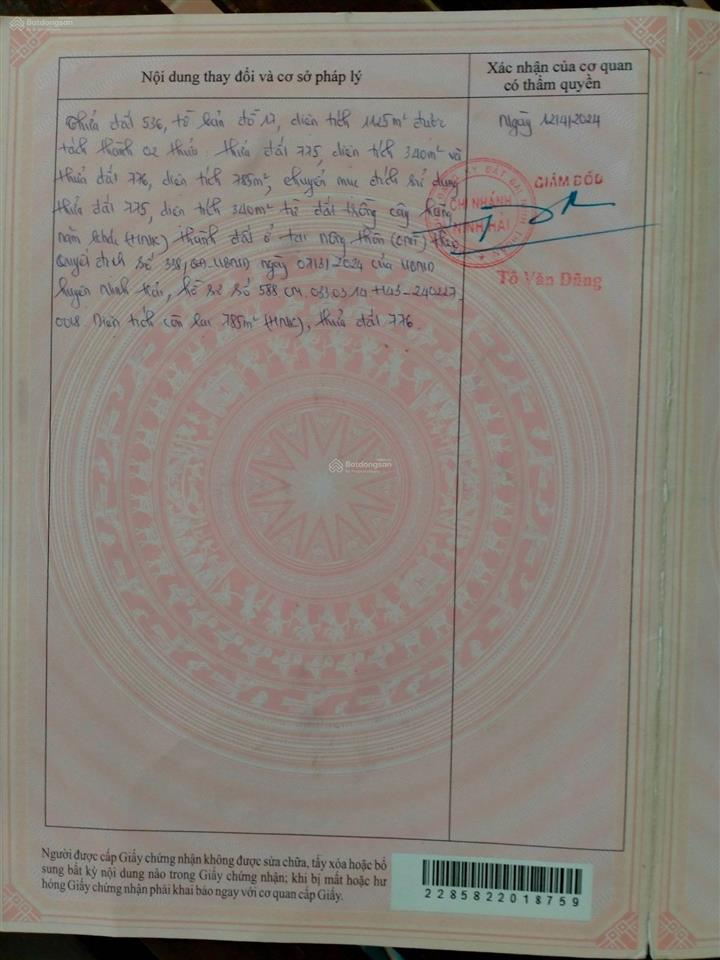 Batdongsan
Nội dung thay đổi và cơ sở pháp lý
Xác nhận của cơ quan
có thẩm quyền
Thửa đất 536, tờ bản đồ 17, diện tích 1125m² được
tách thành 02 thửa: thửa đất 775, diện tích 340m² và
thửa đất 776, diện tích 785m², chuyển mục đích sử dụng
thửa đất 775, diện tích 340m² từ đất trồng cây hàng
năm khác (HNK) thành đất ở tại nông thôn (ONT) theo
Quyết định số 338/QĐ-UBND ngày 07/3/2024 của UBND
huyện Ninh Hải, hồ sơ số 588.CM.
Diện tích còn lại 785m² (HNK), thửa đất 776.
Ngày 12/4/2024
GIÁM ĐỐC
CHI NHÁNH
NINH HẢI
Tô Văn Dũng
Batdongsan
Người được cấp Giấy chứng nhận không được sửa chữa, tẩy xóa hoặc bổ
sung bất kỳ nội dung nào trong Giấy chứng nhận; khi bị mất hoặc hư
hỏng Giấy chứng nhận phải khai báo ngay với cơ quan cấp Giấy.
2285822018759